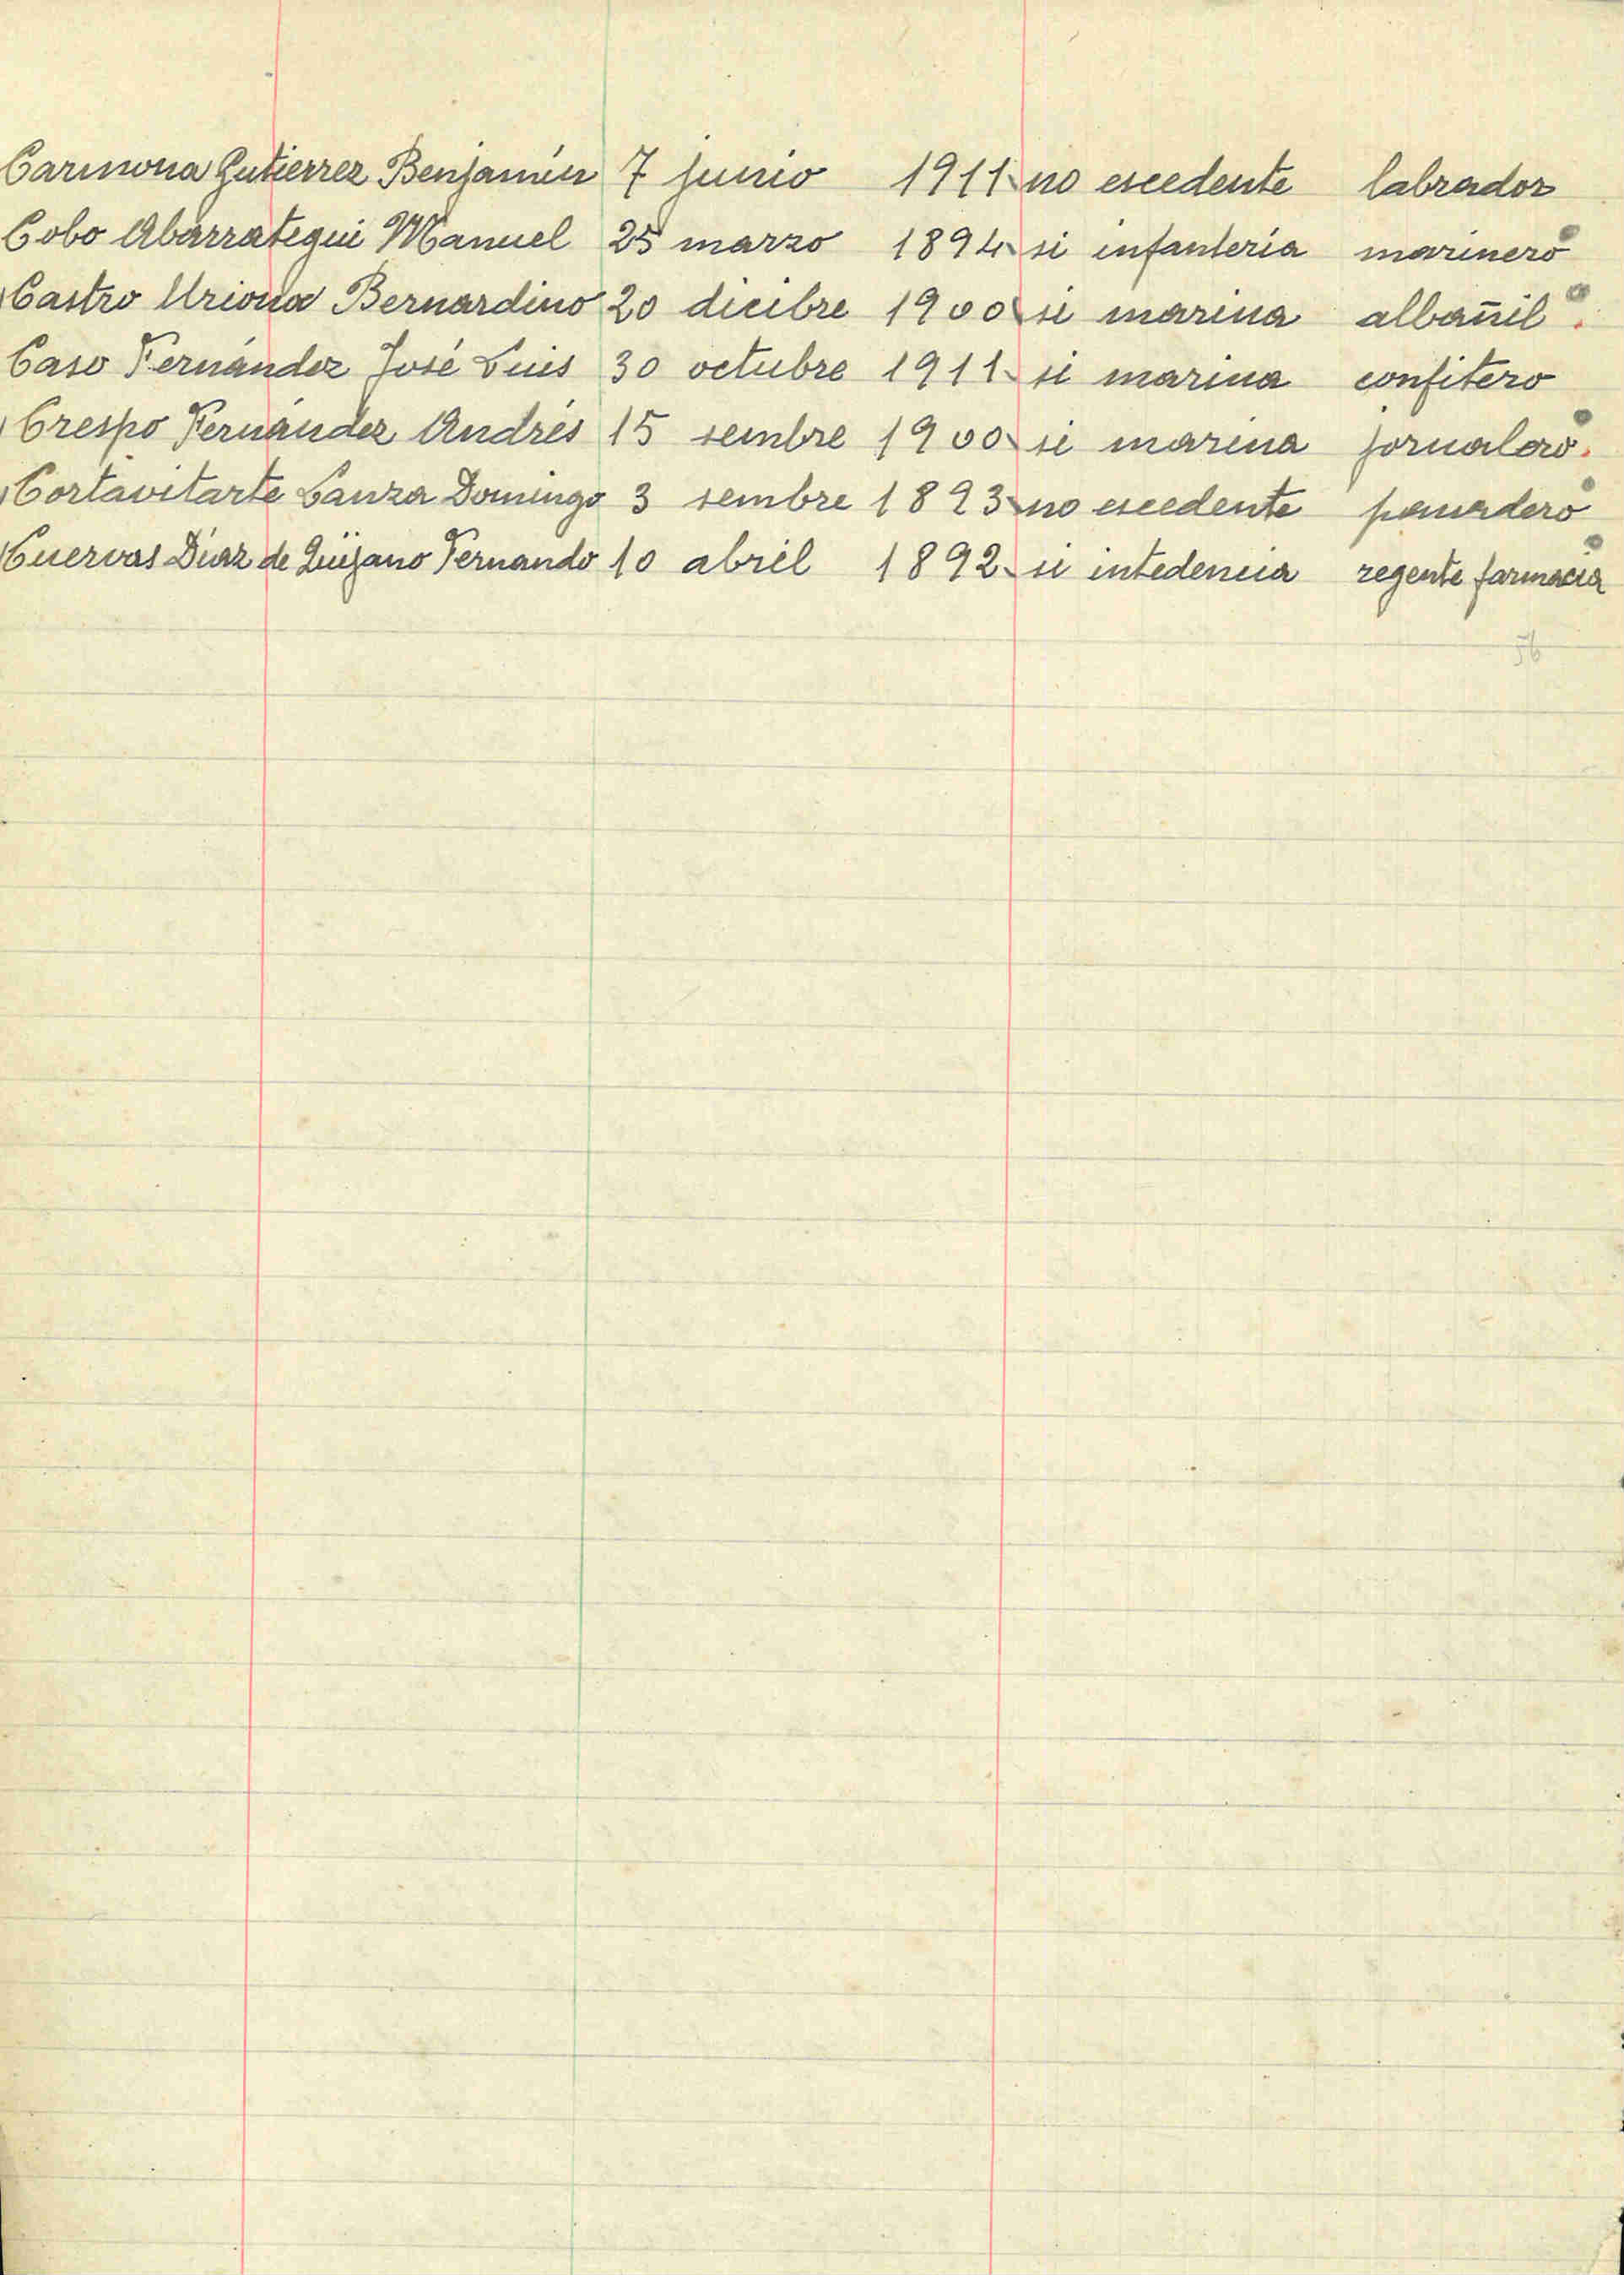 Carmona Gutierrez Benjamín 7 junio 1911 no escedente labrador
Cobo Abarrategui Manuel 25 marzo 1894 si infanteria marinero
Castro Uriona Bernardino 20 dicibre 1900 si marina albañil.
Caso Fernández José Luis 30 octubre 1911 si marina confitero
Crespo Fernández Andrés 15 sembre 1900 si marina jornalero.
Cortavitarte Lanza Domingo 3 sembre 1893 no escedente panadero
Cuervas Diaz de Quijano Fernando 10 abril 1892 si intedencia regente farmacia
56